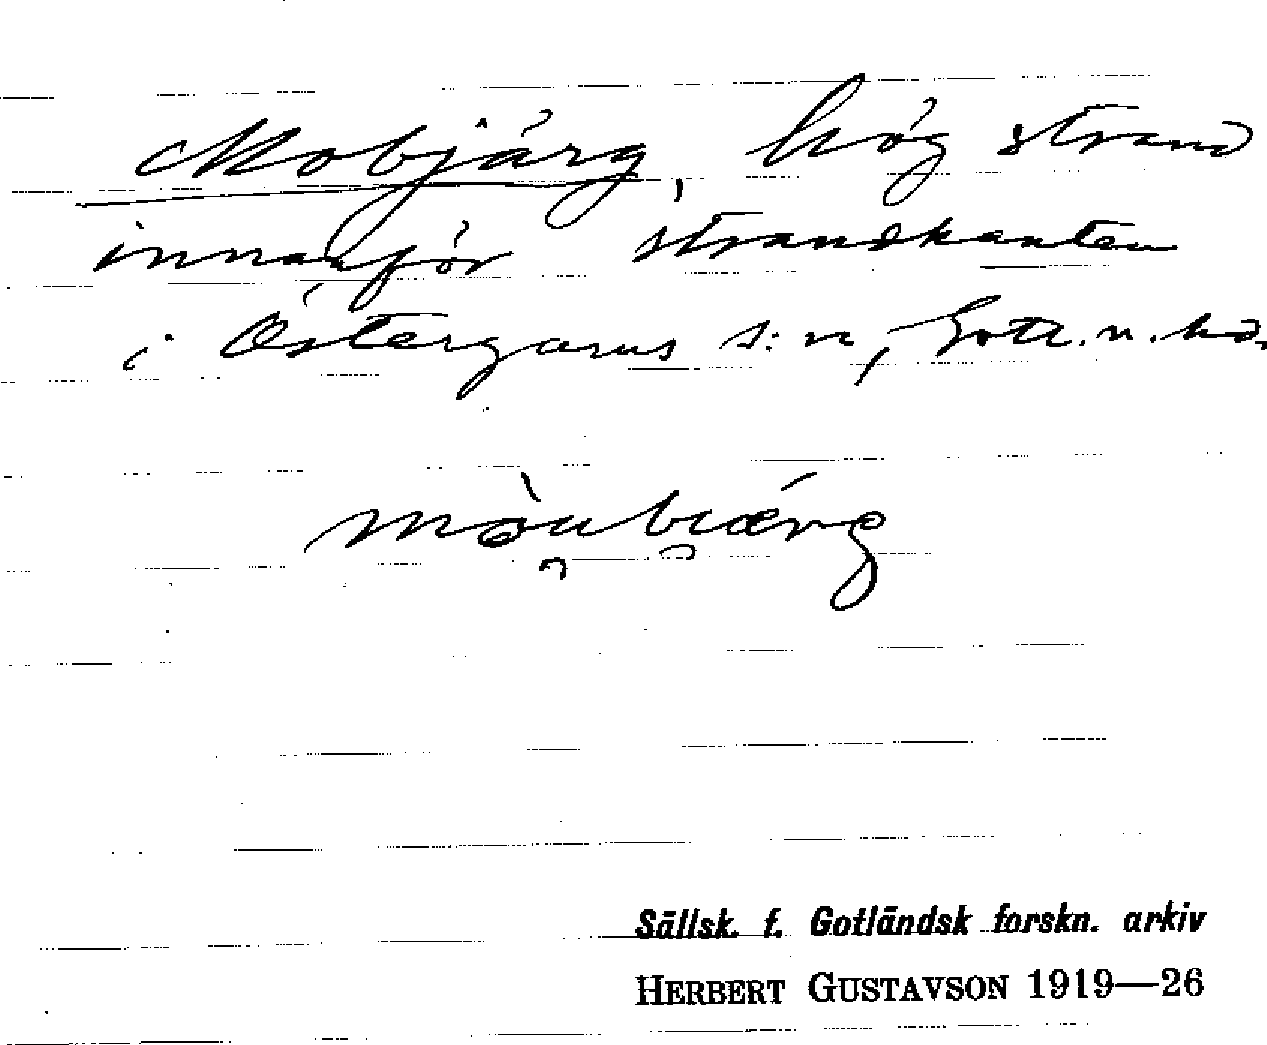 Mobjärg, hög strand
innanför strandkanten
i Östergarns s:n, Gotl. n. hd.
mòu̯bi̯ærg
Sällsk. f. Gotländsk forskn. arkiv
HERBERT GUSTAVSON 1919—26